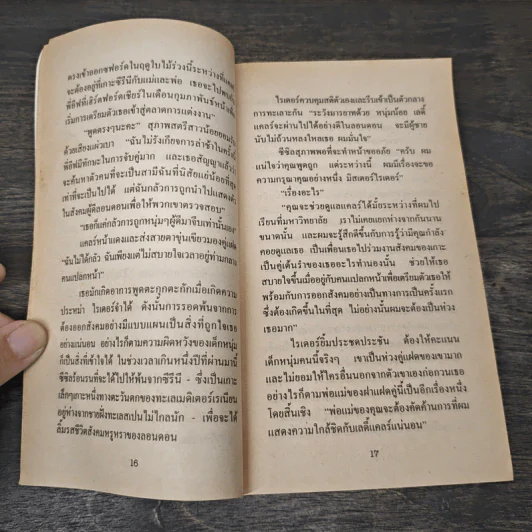 ตรงเข้าออกซฟอร์ดในฤดูใบไม้ร่วงนี้ระหว่างที่
จะต้องอยู่ที่เกาะซีรีนีกับแม่และพ่อ เธอจะไป
พี่อีฟที่เฮิร์ตฟอร์ดเชียร์ในเดือนกุมภาพันธ์
เริ่มการเตรียมตัวเธอเข้าสู่ตลาดการแต่งงาน"
"พูดตรงๆนะคะ" สุภาพสตรีสาวน้อยยอมรับ
ด้วยเสียงแผ่วเบา "ฉันไม่รังเกียจการล่าช้าในครั้งนี้
พี่อีฟมีทักษะในการจับคู่มาก และเธอสัญญาแล้วว่า
จะค้นหาตัวคนที่จะเป็นสามีฉันที่นิสัยแย่น้อยที่สุด
เท่าที่จะเป็นไปได้ แต่ฉันกลัวการถูกนำไปแสดงตัว
ในสังคมผู้ดีลอนดอนเพื่อให้พวกเขาตรวจสอบ"
"เธอก็แค่กลัวการถูกหนุ่มๆผู้ดีมาจีบเท่านั้นเอง"
แคลร์หน้าแดงและส่งสายตาขุ่นเขียวมองคู่แฝด
"ฉันไม่ได้กลัว ฉันเพียงแต่ไม่สบายใจเวลาอยู่ท่ามกลาง
คนแปลกหน้า"
เธอมักเกิดอาการพูดตะกุกตะกักเมื่อเกิดความ
ประหม่า ไรเดอร์จำได้ ดังนั้นการรอดพ้นจากการ
ต้องออกสังคมอย่างมีแบบแผนเป็นสิ่งที่ถูกใจเธอ
อย่างไรก็ตามความผิดหวังของเด็กหนุ่ม
ก็เป็นสิ่งที่เข้าใจได้ ในช่วงเวลากึ่งหนึ่งปีที่ผ่านมานี้
ซีซิลร้อนรนที่จะได้ไปให้พ้นจากซีรีนี - ซึ่งเป็นเกาะ
เล็กๆเกาะหนึ่งทางตะวันตกของทะเลเมดิเตอร์เรเนียน
อยู่ห่างจากชายฝั่งทะเลสเปนไม่ไกลนัก - เพื่อจะได้
ลิ้มรสชีวิตสังคมหรูหราของลอนดอน
16
ไรเดอร์ควบคุมสติตัวเองและรีบเข้าเป็นตัวกลาง
การทะเลาะกัน "ระวังมารยาทด้วย หนุ่มน้อย เลดี้
แคลร์จะผ่านไปได้อย่างดีในลอนดอน จะมีผู้ชาย
นับไม่ถ้วนหลงใหลเธอ ผมมั่นใจ"
ซีซิลสุภาพพอที่จะทำหน้าขออภัย "ครับ ผม
แน่ใจว่าคุณพูดถูก แต่ระหว่างนี้ ผมมีเรื่องจะขอ
ความกรุณาคุณอย่างหนึ่ง มิสเตอร์ไรเดอร์"
"เรื่องอะไร"
"คุณจะช่วยดูแลแคลร์ได้มั้ยระหว่างที่ผมไป
เรียนที่มหาวิทยาลัย เราไม่เคยแยกห่างจากกันนาน
ขนาดนั้น และผมจะรู้สึกดีขึ้นกับการรู้ว่ามีคุณกำลัง
คอยดูแลเธอ เป็นเพื่อนเธอไปร่วมงานสังคมของเกาะ
เป็นคู่เต้นรำของเธออะไรทำนองนั้น ช่วยให้เธอ
สบายใจขึ้นเมื่ออยู่กับคนแปลกหน้าเพื่อเตรียมตัวเธอให้
พร้อมกับการออกสังคมอย่างเป็นทางการเป็นครั้งแรก
ซึ่งต้องเกิดขึ้นในที่สุด ไม่อย่างนั้นผมจะเป็นห่วง
เธอมาก"
ไรเดอร์ยิ้มประชดประชัน ต้องให้คะแนน
เด็กหนุ่มคนนี้จริงๆ เขาเป็นห่วงคู่แฝดของเขามาก
และไม่ยอมให้ใครอื่นนอกจากตัวเขาเองก่อกวนเธอ
อย่างไรก็ตามพ่อแม่ของฝาแฝดคู่นี้เป็นอีกเรื่องหนึ่ง
โดยสิ้นเชิง "พ่อแม่ของคุณจะต้องคัดค้านการที่ผม
แสดงความใกล้ชิดกับเลดี้แคลร์แน่นอน"
17